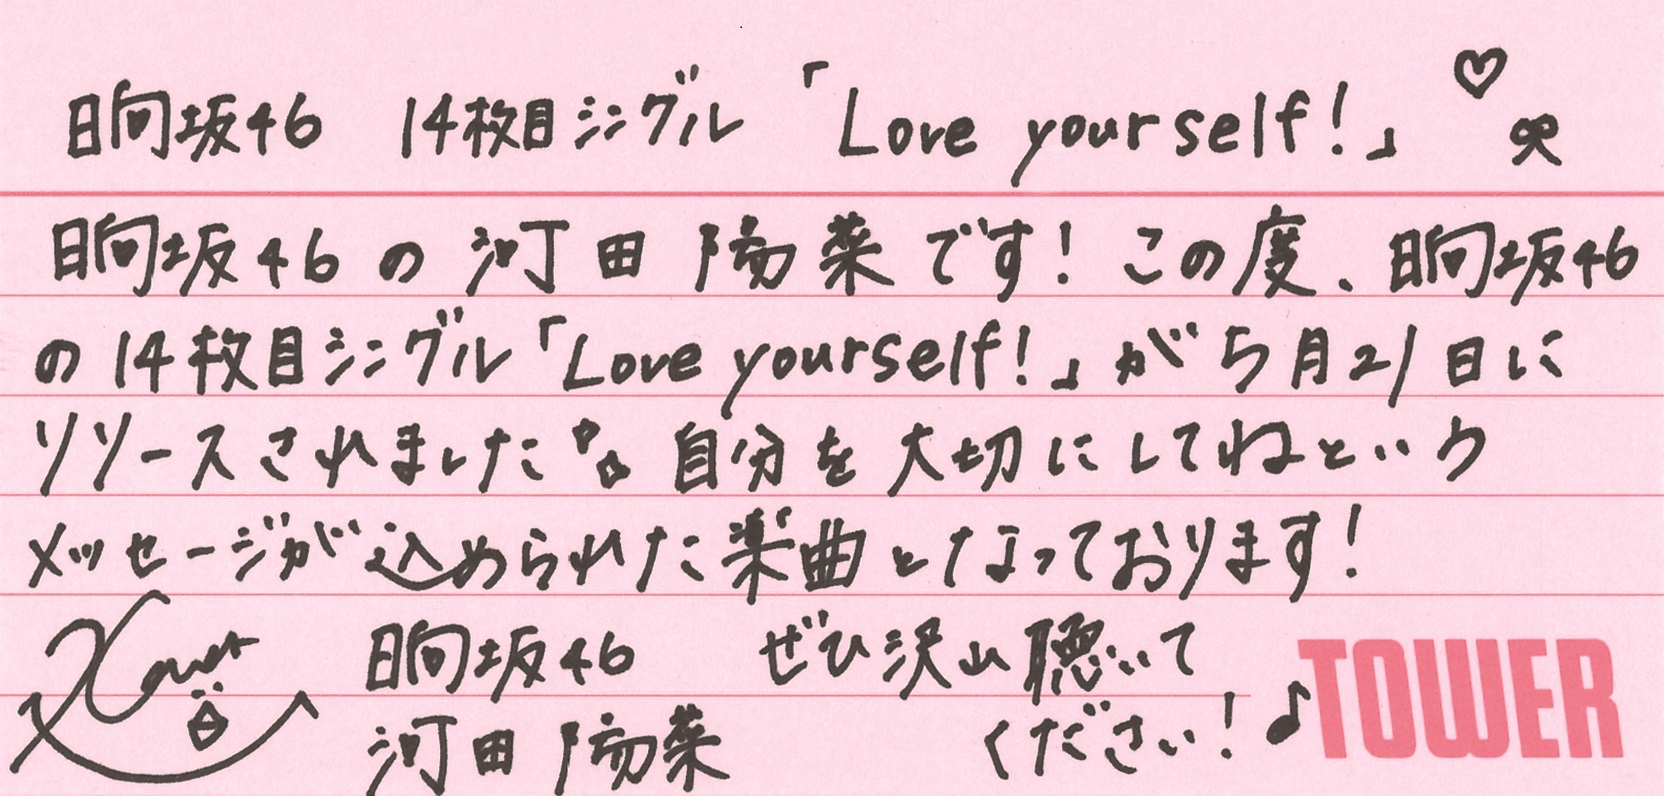 日向坂46 14枚目シングル「Love yourself!」♡
日向坂46の河田陽菜です！この度、日向坂46
の14枚目シングル「Love yourself!」が5月21日に
リリースされました。自分を大切にしてねという
メッセージが込められた楽曲となっております！
日向坂46 ぜひ沢山聴いて
河田陽菜 ください！♪
TOWER